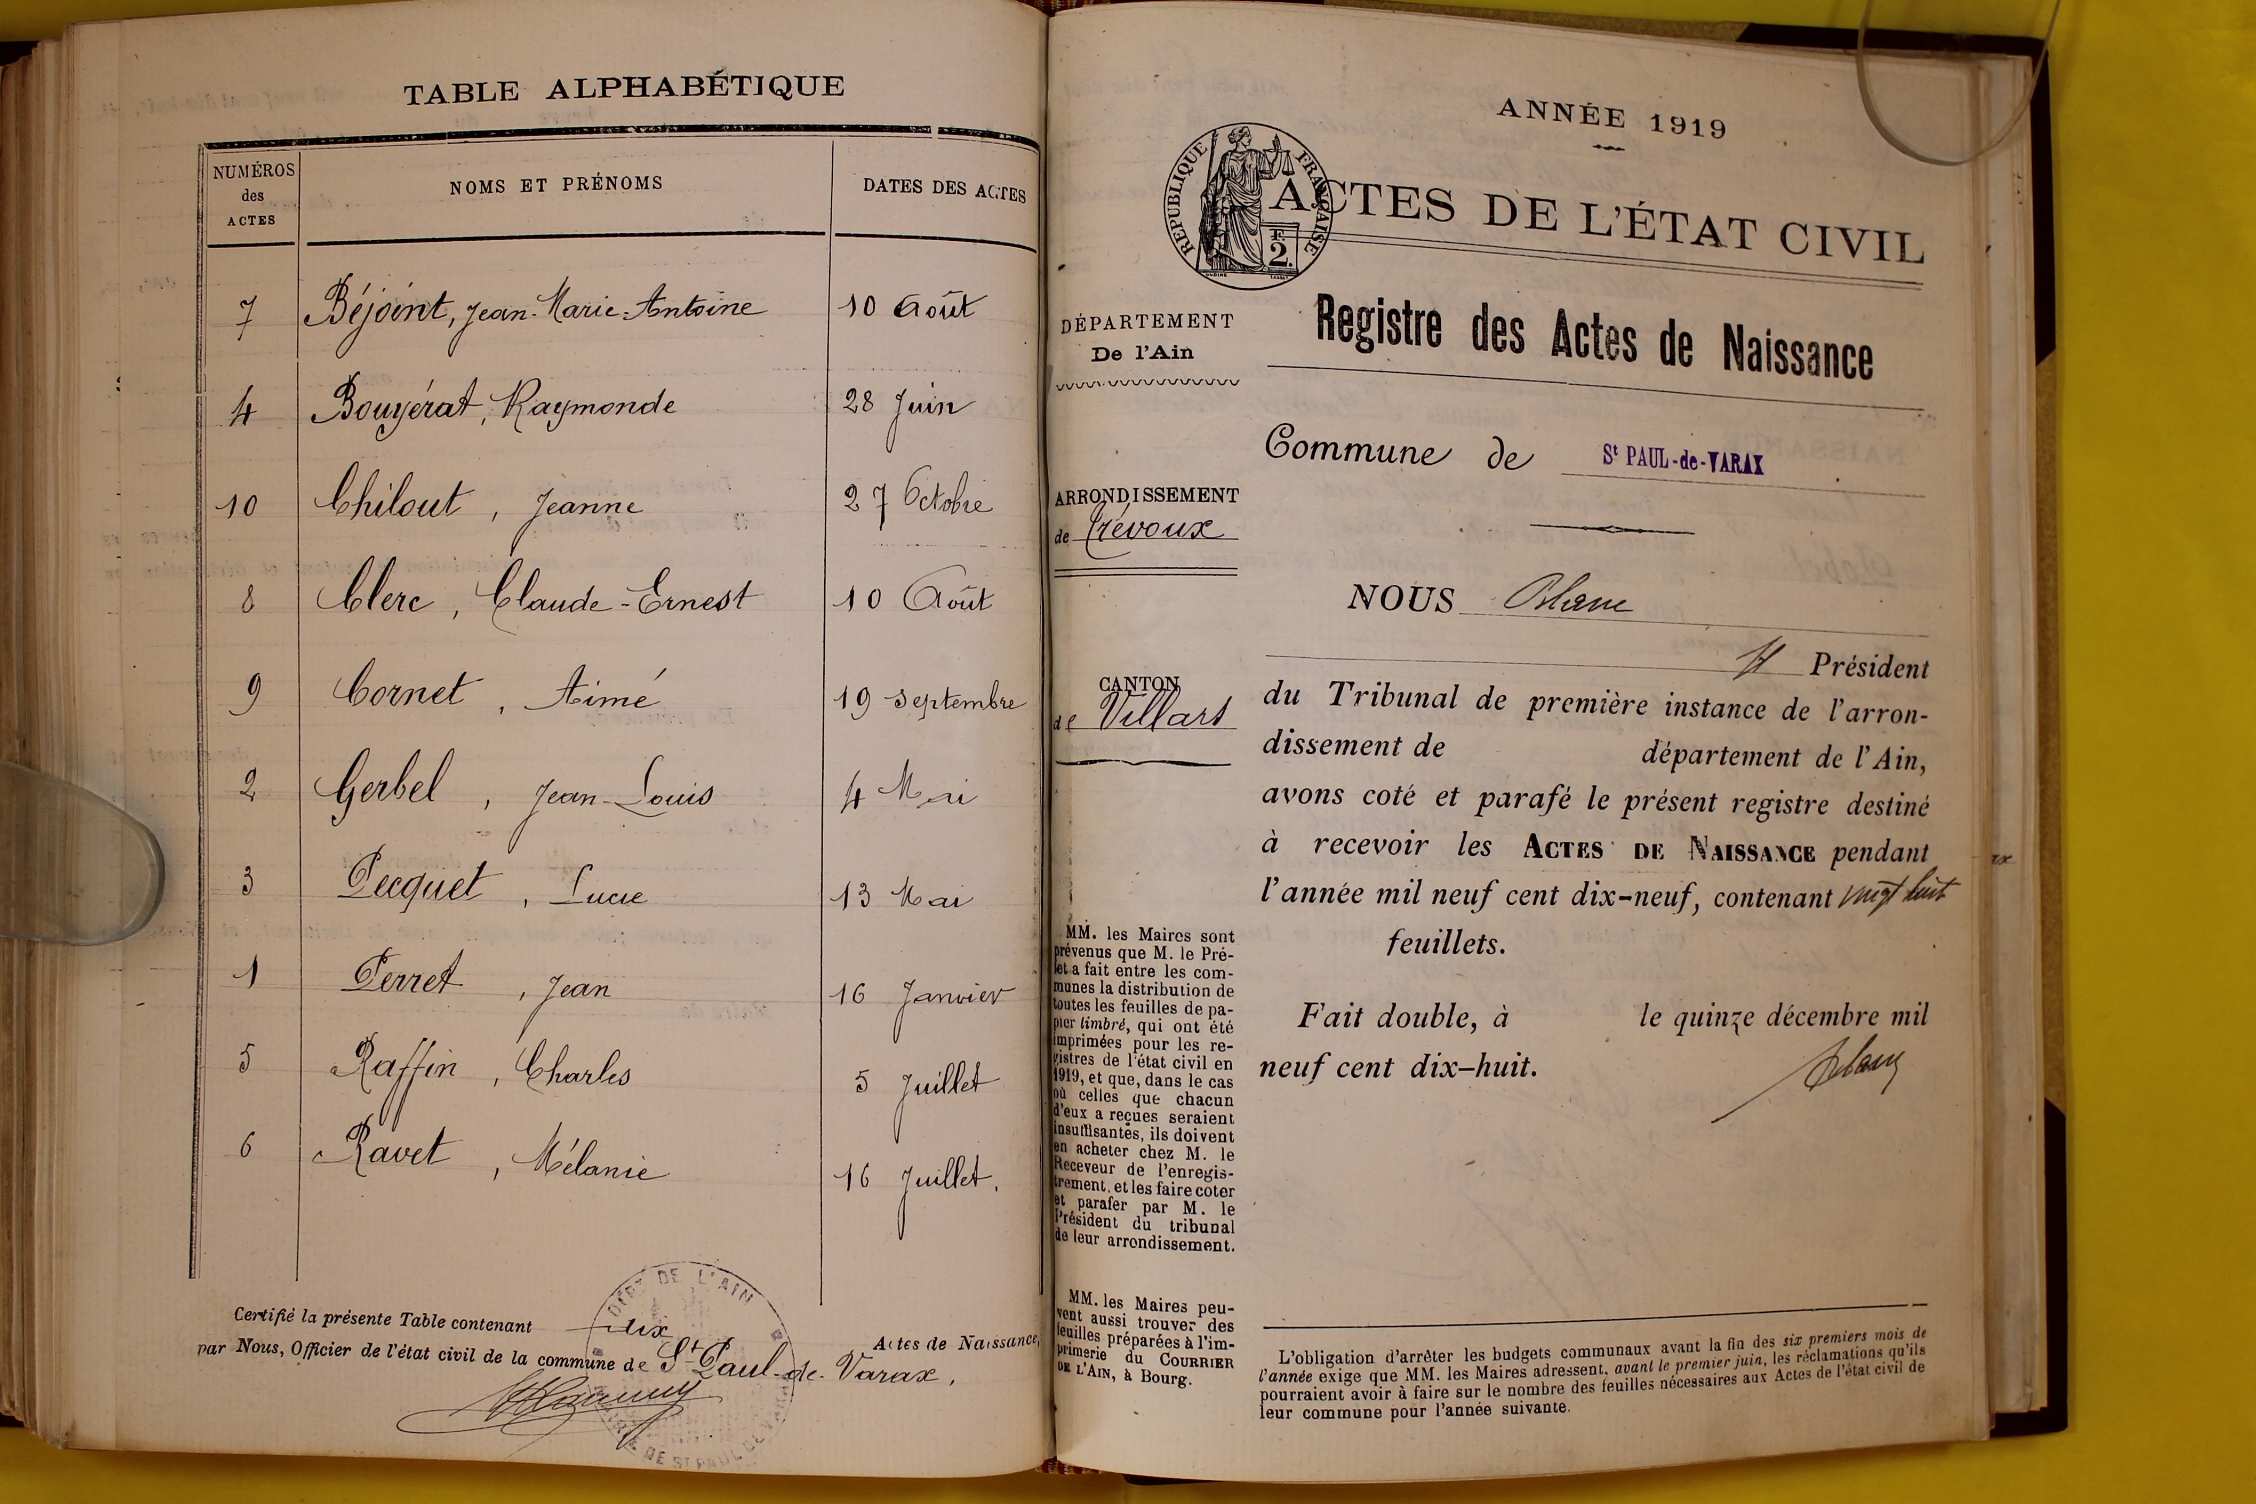 TABLE ALPHABÉTIQUE
NUMÉROS des ACTES
NOMS ET PRÉNOMS
DATES DES ACTES
7 Béjoint, Jean-Marie-Antoine 10 Août
4 Bouyérat, Raymonde 28 Juin
10 Chilout, Jeanne 27 Octobre
8 Clerc, Claude-Ernest 10 Août
9 Cornet, Aimé 19 septembre
2 Gerbel, Jean-Louis 4 Mai
3 Pecquet, Lucie 13 Mai
1 Perret, Jean 16 Janvier
5 Raffin, Charles 5 Juillet
6 Ravet, Mélanie 16 Juillet.
Certifié la présente Table contenant dix Actes de Naissance,
par Nous, Officier de l'état civil de la commune de St-Paul-de-Varax,
DÉPT DE L'AIN
MAIRIE DE ST PAUL DE VARAX
ANNÉE 1919
RÉPUBLIQUE FRANÇAISE
2.
ACTES DE L'ÉTAT CIVIL
DÉPARTEMENT
De l'Ain
ARRONDISSEMENT
de Trévoux
CANTON
de Villars
MM. les Maires sont
prévenus que M. le Pré-
fet a fait entre les com-
munes la distribution de
toutes les feuilles de pa-
pier timbré, qui ont été
imprimées pour les re-
gistres de l'état civil en
1919, et que, dans le cas
où celles que chacun
d'eux a reçues seraient
insuffisantes, ils doivent
en acheter chez M. le
Receveur de l'enregis-
trement, et les faire coter
et parafer par M. le
Président du tribunal
de leur arrondissement.
MM. les Maires peu-
vent aussi trouver des
feuilles préparées à l'im-
primerie du COURRIER
DE L'AIN, à Bourg.
Registre des Actes de Naissance
Commune de St PAUL-de-VARAX
NOUS Blanc
Président
du Tribunal de première instance de l'arron-
dissement de département de l'Ain,
avons coté et parafé le présent registre destiné
à recevoir les ACTES DE NAISSANCE pendant
l'année mil neuf cent dix-neuf, contenant vingt huit
feuillets.
Fait double, à le quinze décembre mil
neuf cent dix-huit.
Blanc
L'obligation d'arrêter les budgets communaux avant la fin des six premiers mois de
l'année exige que MM. les Maires adressent, avant le premier juin, les réclamations qu'ils
pourraient avoir à faire sur le nombre des feuilles nécessaires aux Actes de l'état civil de
leur commune pour l'année suivante.